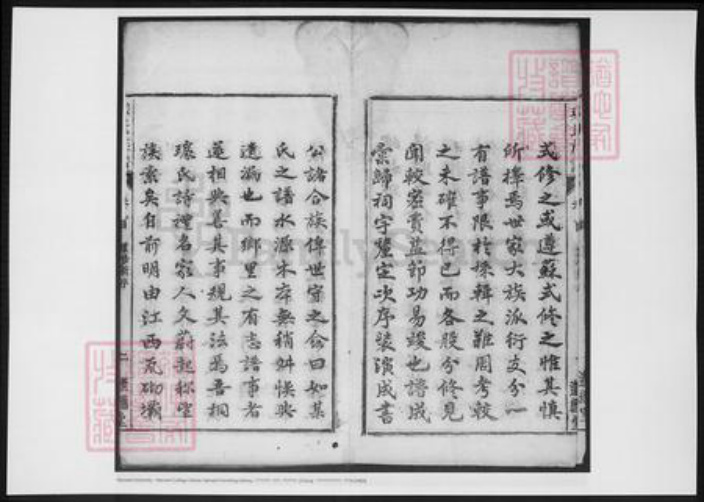 式修之或遵蘇式修之惟其慎
所擇焉世家大族派衍支分一
有譜事限於採輯之難周考較
之未確不得已而各股分修見
聞較密責益節功易竣也譜成
彙歸祠宇釐定次序裝潢成書
公諸合族俾世守之僉曰如某
氏之譜水源木本無稍舛悮與
遺漏也而鄉里之有志譜事者
遞相興善其事規其法焉吾桐
璩氏詩禮名家人文蔚起稱望
族素矣自前明由江西瓦砌壩
FamilySearch